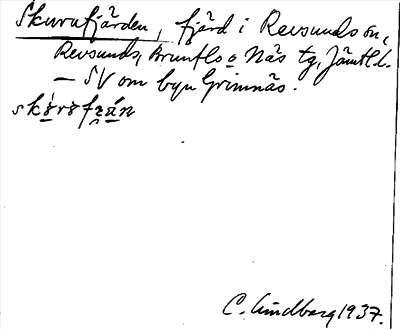 Skurufjärden, fjärd i Revsundssön,
Revsunds, Brunflo o Näs tg, Jämtl. l.
— SV om byn Grimnäs.
C. Lindberg 1937.